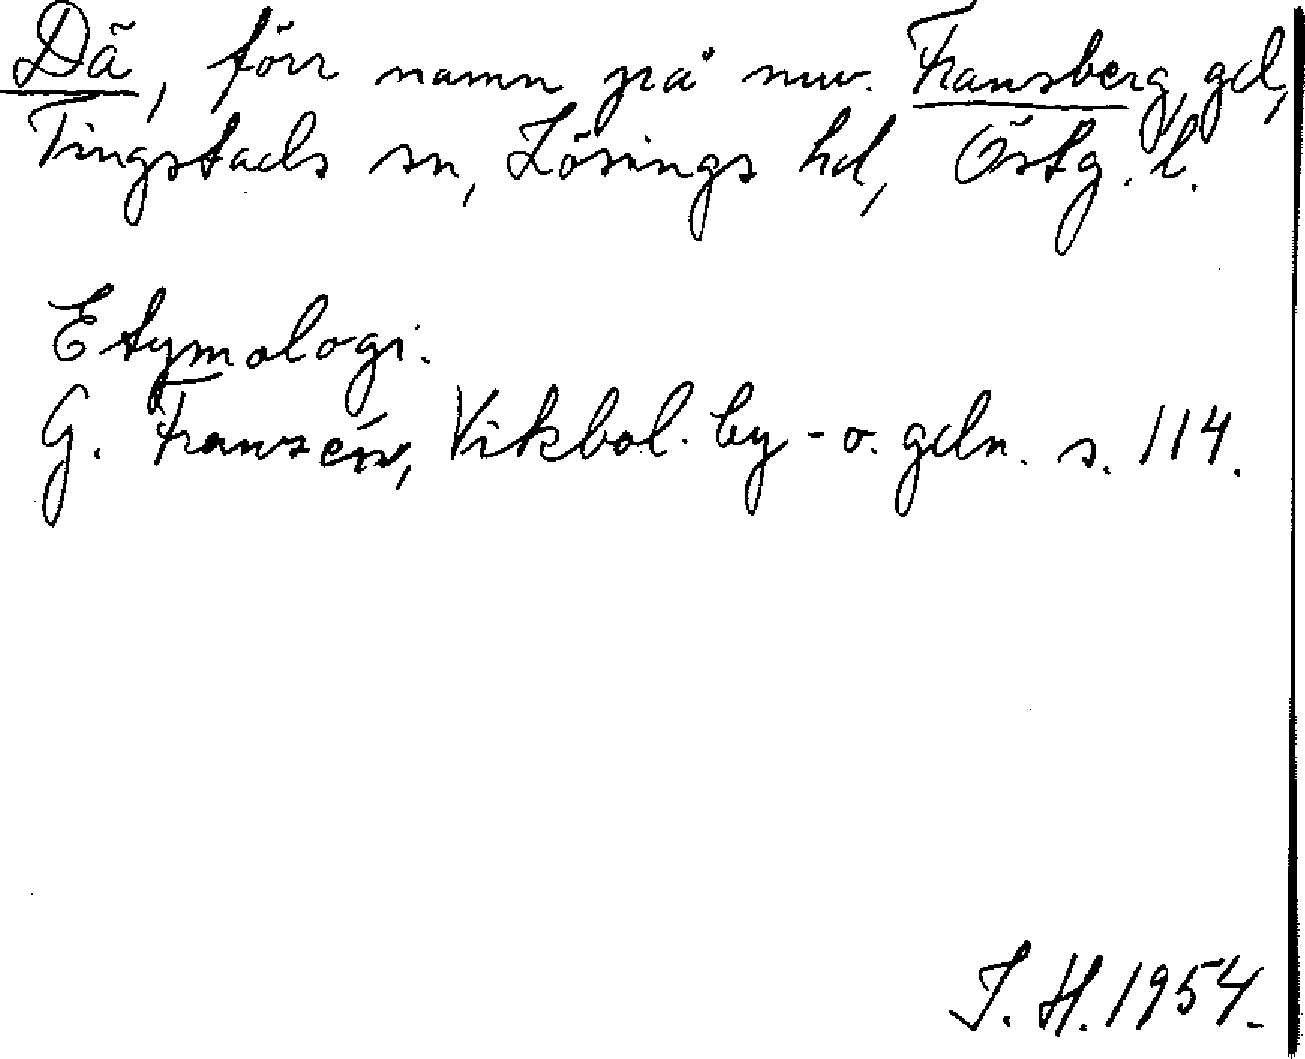 Dä, förr namn på nuv. Fransberg, gd,
Tingstads sn, Lösings hd, Östg. l.
Etymologi.
G. Franzén, Vikbol. by- o. gdn. s. 114.
J. H. 1954.